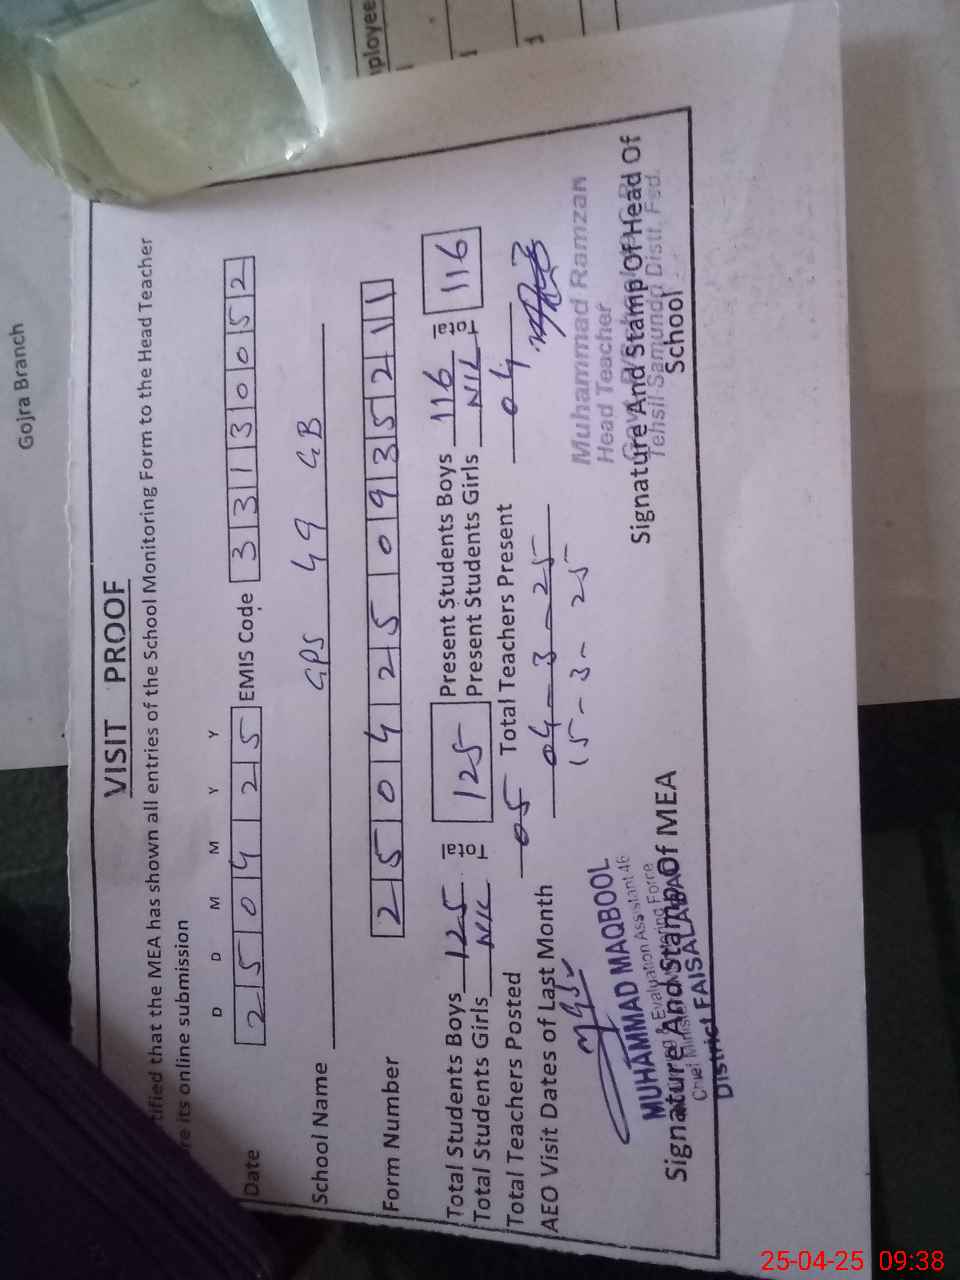 Gojra Branch
ployee
VISIT PROOF
tified that the MEA has shown all entries of the School Monitoring Form to the Head Teacher
re its online submission
D D M M Y Y
Date 250425 EMIS Code 33130052
School Name GPS 49 GB
Form Number 2504250935211
Total Students Boys 125 Total 125 Present Students Boys 116 Total 116
Total Students Girls NIL Present Students Girls NIL
Total Teachers Posted 05 Total Teachers Present 04
AEO Visit Dates of Last Month 04-3-25
15-3-25
MUHAMMAD MAQBOOL
& Evaluation Assistant 46
Monitoring Force
District FAISALABAD
Signature And Stamp Of MEA
Muhammad Ramzan
Head Teacher
Tehsil Samundri Distt. Fsd.
Signature And Stamp Of Head Of
School
25-04-25 09:38